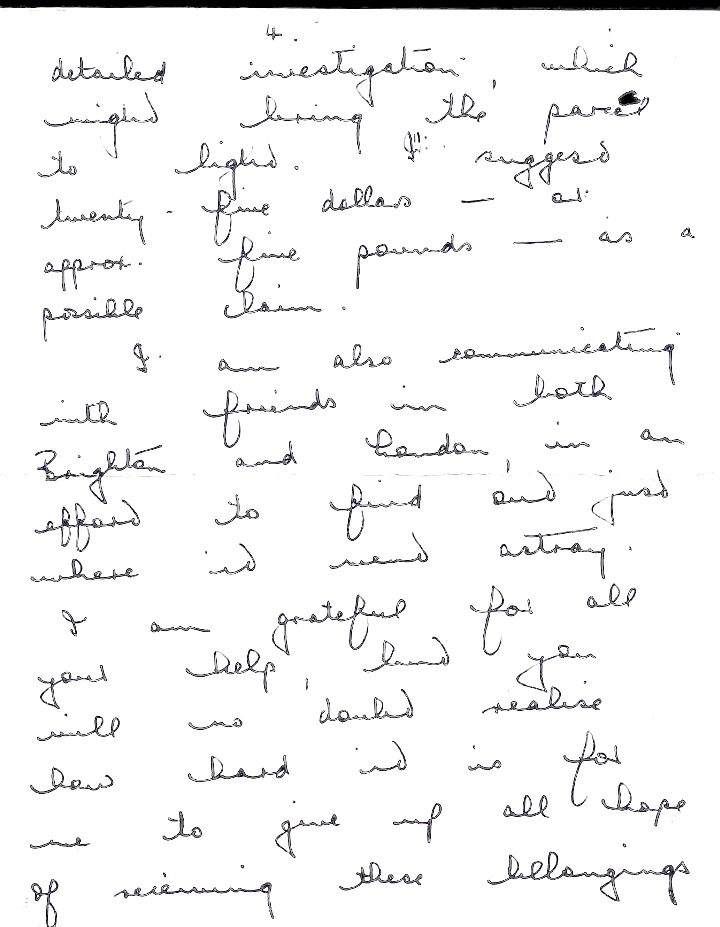 4.
detailed investigation, which
might bring the parcel
to light. I suggest
twenty-five dollars — or
approx. five pounds — as a
possible claim.
I am also communicating
with friends in both
Brighton and London, in an
effort to find out just
where it went astray.
I am grateful for all
your help, but you
will no doubt realise
how hard it is for
me to give up all hope
of receiving these belongings